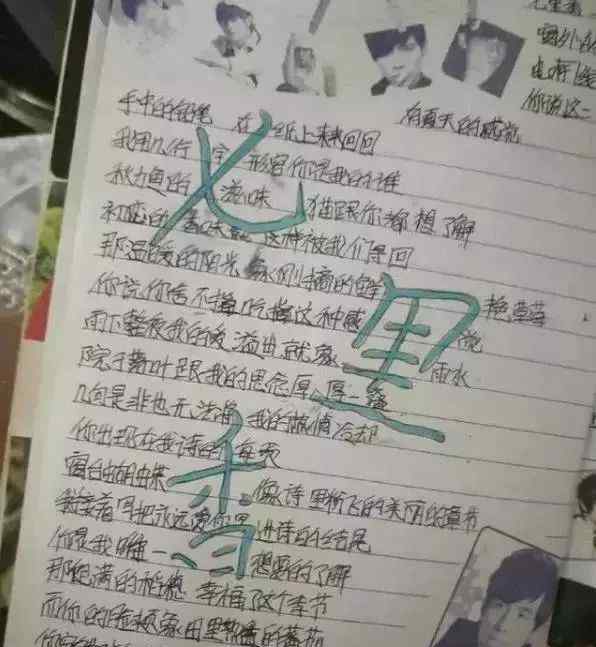 窗外的
你说这一
有夏天的感觉
手中的铅笔 在 纸上来来回回
我用几行 字 形容你是我的谁
秋刀鱼的 滋味 猫跟你都想了解
初恋的 香味就 这种被我们寻回
那温暖的阳光 象刚摘的鲜 艳草莓
你说你舍不得吃掉这种感 觉
雨下整夜我的爱溢出就象 雨水
院子落叶跟我的思念厚厚一叠
几句是非也无法将 我的热情冷却
你出现在我诗的每一页
窗台蝴蝶 像诗里纷飞的美丽的章节
我接着写把永远爱你写进诗的结尾
你是我唯一 想要的了解
那饱满的稻穗 幸福了这个季节
而你的脸颊象田里熟透的蕃茄
七
里
香